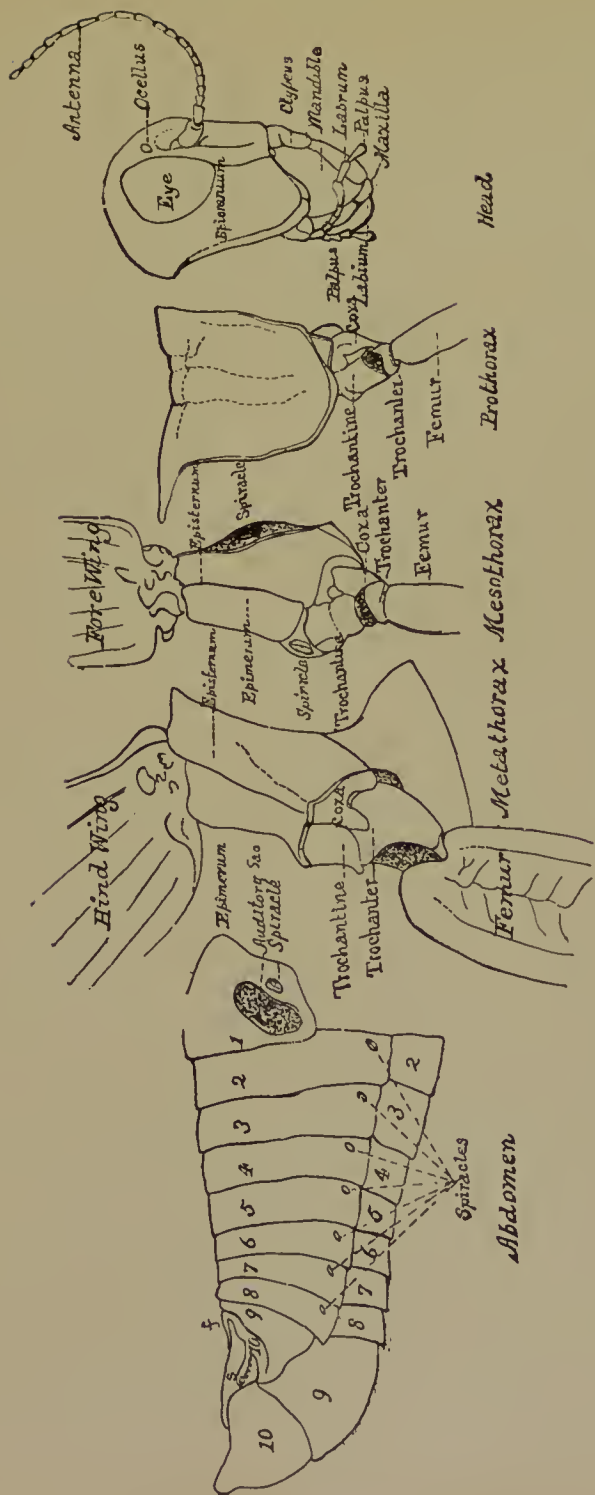 Antenna
Ocellus
Eye
Epicranium
Clypeus
Mandible
Labrum
Palpus
Maxilla
Palpus
Labium
Head
Coxa
Trochantine
Trochanter
Femur
Prothorax
Fore Wing
Episternum
Spiracle
Episternum
Epimerum
Spiracle
Trochantine
Coxa
Trochanter
Femur
Mesothorax
Hind Wing
Epimerum
Coxa
Trochantine
Trochanter
Femur
Metathorax
Auditory Sac
Spiracle
1
2
3
4
5
6
7
8
9
10
f
s
2
3
4
5
6
7
8
9
10
Spiracles
Abdomen